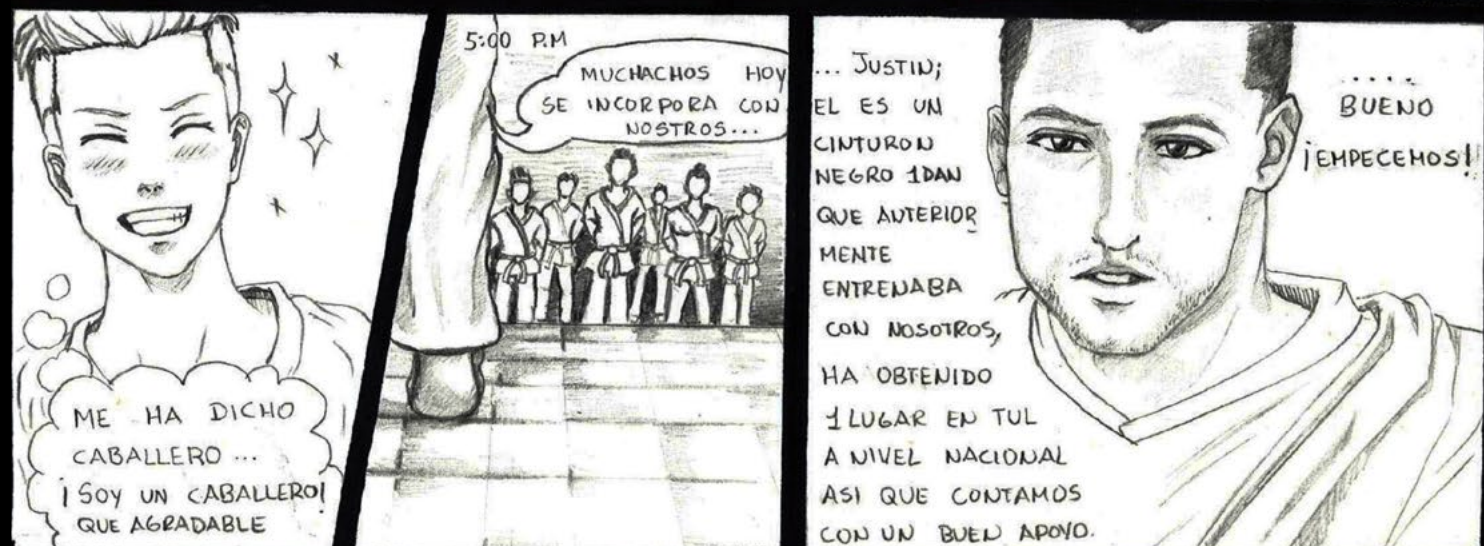 ME HA DICHO
CABALLERO ...
¡SOY UN CABALLERO!
QUE AGRADABLE
5:00 P.M
MUCHACHOS HOY
SE INCORPORA CON
NOSTROS...
... JUSTIN;
EL ES UN
CINTURON
NEGRO 1DAN
QUE ANTERIOR
MENTE
ENTRENABA
CON NOSOTROS,
HA OBTENIDO
1 LUGAR EN TUL
A NIVEL NACIONAL
ASI QUE CONTAMOS
CON UN BUEN APOYO.
....
BUENO
¡EMPECEMOS!